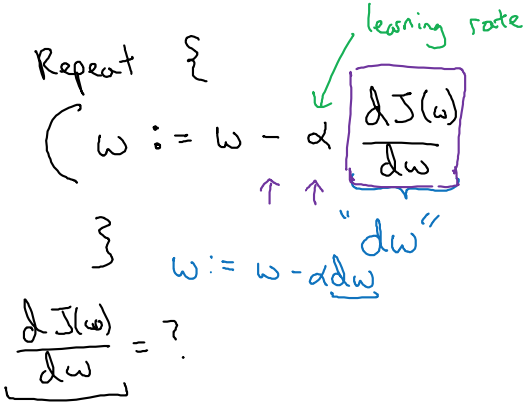 learning rate
Repeat {
w := w - α dJ(w)/dw
"dw"
}
w := w - αdw
dJ(w)/dw = ?